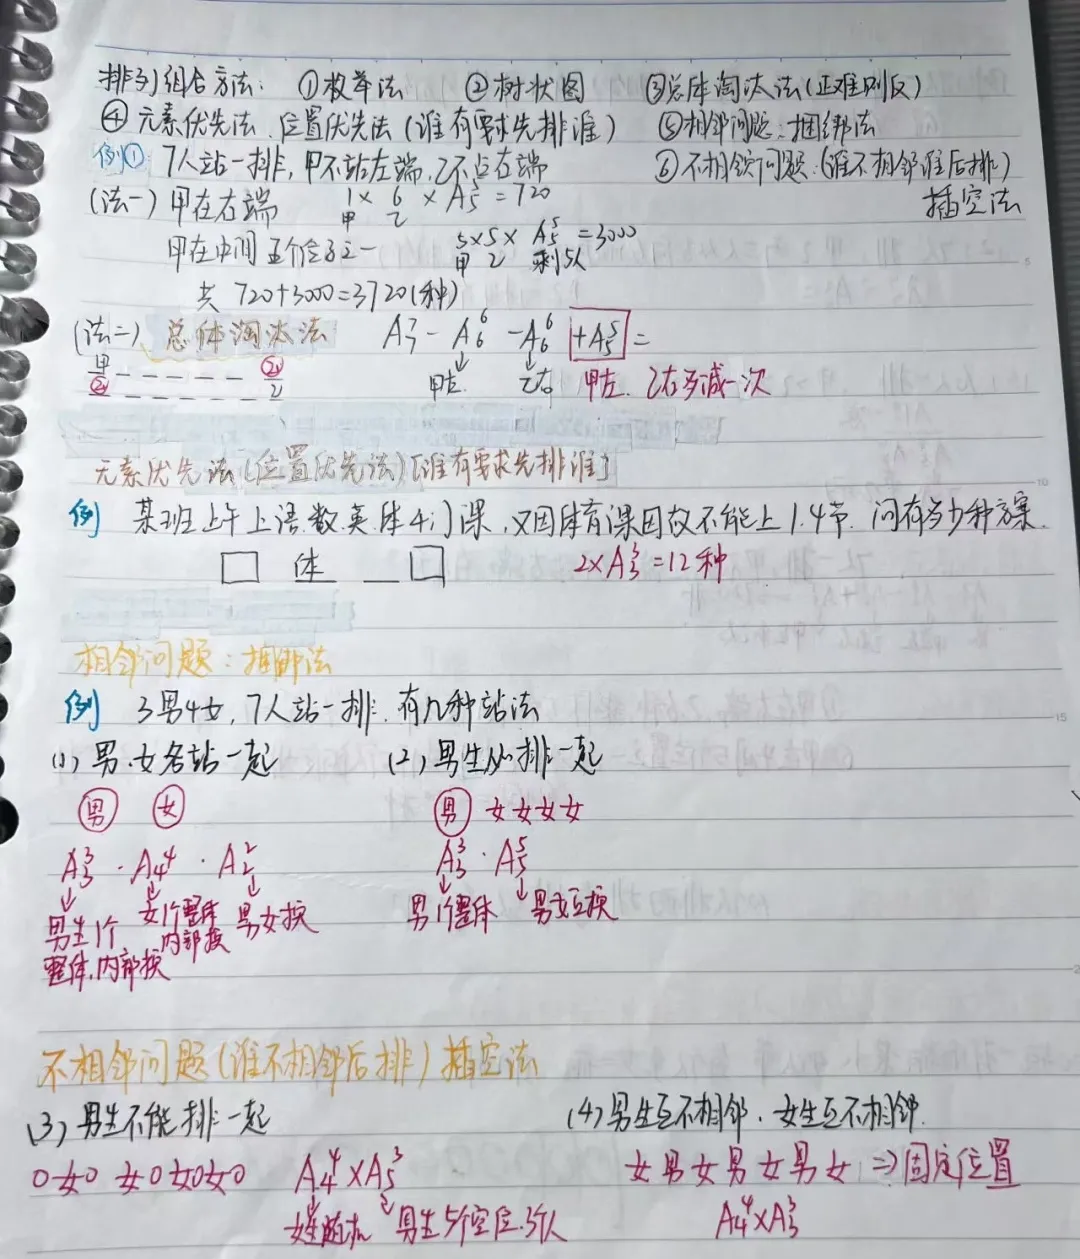 排列组合方法: ①枚举法 ②树状图 ③总体淘汰法(正难则反)
④元素优先法、位置优先法(谁有要求先排谁) ⑤相邻问题:捆绑法
例① 7人站一排,甲不站左端,乙不占右端 ⑥不相邻问题:(谁不相邻谁后排)
(法一) 甲在右端 1×6×A₅⁵=720 插空法
甲 乙
甲在中间五个位子之一 5×5×A₅⁵=3000
甲 乙 剩5人
共 720+3000=3720(种)
(法二) 总体淘汰法 A₇⁷-A₆⁶-A₆⁶+A₅⁵=
甲 乙
乙 乙 甲左 乙右 甲左、乙右多减一次
元素优先法(位置优先法)[谁有要求先排谁]
例 某班上午上语.数.英.体4门课,又因体育课因故不能上1.4节.问有多少种方案.
体 2×A₃³=12种
相邻问题:捆绑法
例 3男4女,7人站一排.有几种站法
(1)男.女各站一起 (2)男生必排一起
男 女 男 女女女女
A₃³·A₄⁴·A₂² A₃³·A₅⁵
男生1个 女1个整体 男女换 男1个整体 男女互换
整体.内部换 内部换
不相邻问题(谁不相邻后排)插空法
(3)男生不能排一起 (4)男生互不相邻.女生互不相邻.
0女0 女0女0女0 A₄⁴×A₅³ 女男女男女男女⇒固定位置
女生随机 男生5个空位.3个人 A₄⁴×A₃³